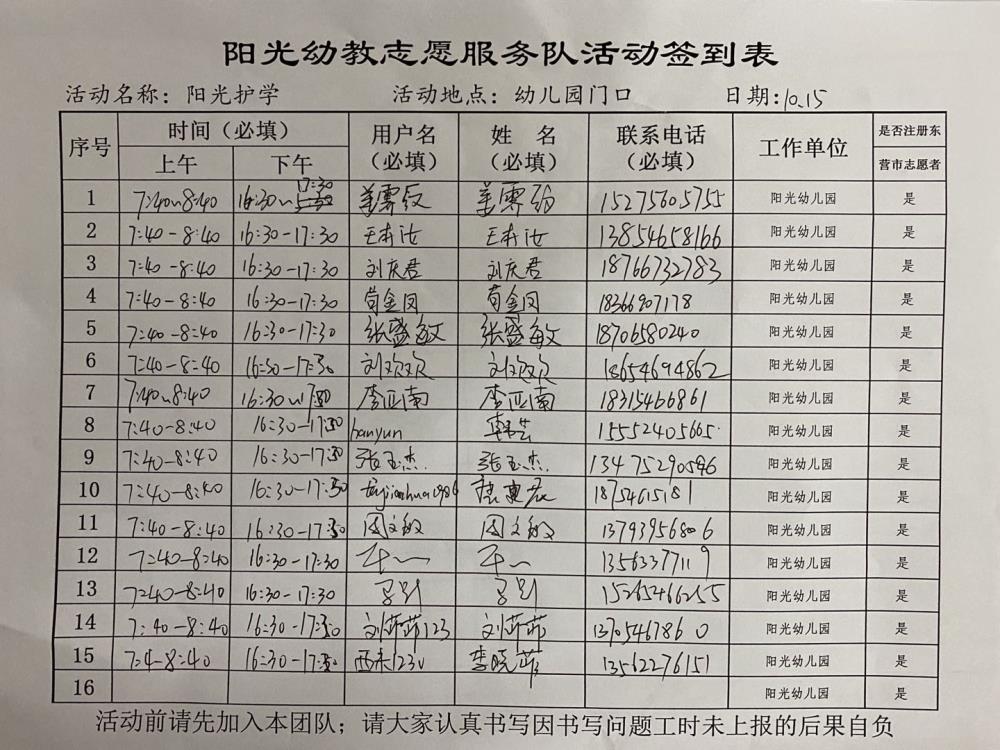 阳光幼教志愿服务队活动签到表
活动名称：阳光护学 活动地点：幼儿园门口 日期：10.15
序号 时间（必填） 用户名（必填） 姓 名（必填） 联系电话（必填） 工作单位 是否注册东营市志愿者
上午 下午
1 7:40~8:40 16:30~17:30 15275605755 阳光幼儿园 是
2 7:40-8:40 16:30-17:30 13854658166 阳光幼儿园 是
3 7:40-8:40 16:30-17:30 刘庆君 刘庆君 18766732783 阳光幼儿园 是
4 7:40-8:40 16:30-17:30 苟金凤 苟金凤 18366907178 阳光幼儿园 是
5 7:40-8:40 16:30-17:30 张盛敏 张盛敏 18706580240 阳光幼儿园 是
6 7:40-8:40 16:30-17:30 刘欢欢 刘欢欢 18654694862 阳光幼儿园 是
7 7:40~8:40 16:30~17:30 李亚南 李亚南 18315466861 阳光幼儿园 是
8 7:40-8:40 16:30-17:30 hanyun 韩芸 15552405665 阳光幼儿园 是
9 7:40-8:40 16:30-17:30 张玉杰 张玉杰 13475290596 阳光幼儿园 是
10 7:40-8:40 16:30-17:30 阳光幼儿园 是
11 7:40-8:40 16:30-17:30 周文敏 周文敏 13793956806 阳光幼儿园 是
12 7:40-8:40 16:30-17:30 13563377119 阳光幼儿园 是
13 7:40-8:40 16:30-17:30 15265466255 阳光幼儿园 是
14 7:40-8:40 16:30-17:30 刘菲菲123 刘菲菲 阳光幼儿园 是
15 7:4-8:40 16:30-17:30 李晓菲 13562276151 阳光幼儿园 是
16 阳光幼儿园 是
活动前请先加入本团队；请大家认真书写因书写问题工时未上报的后果自负